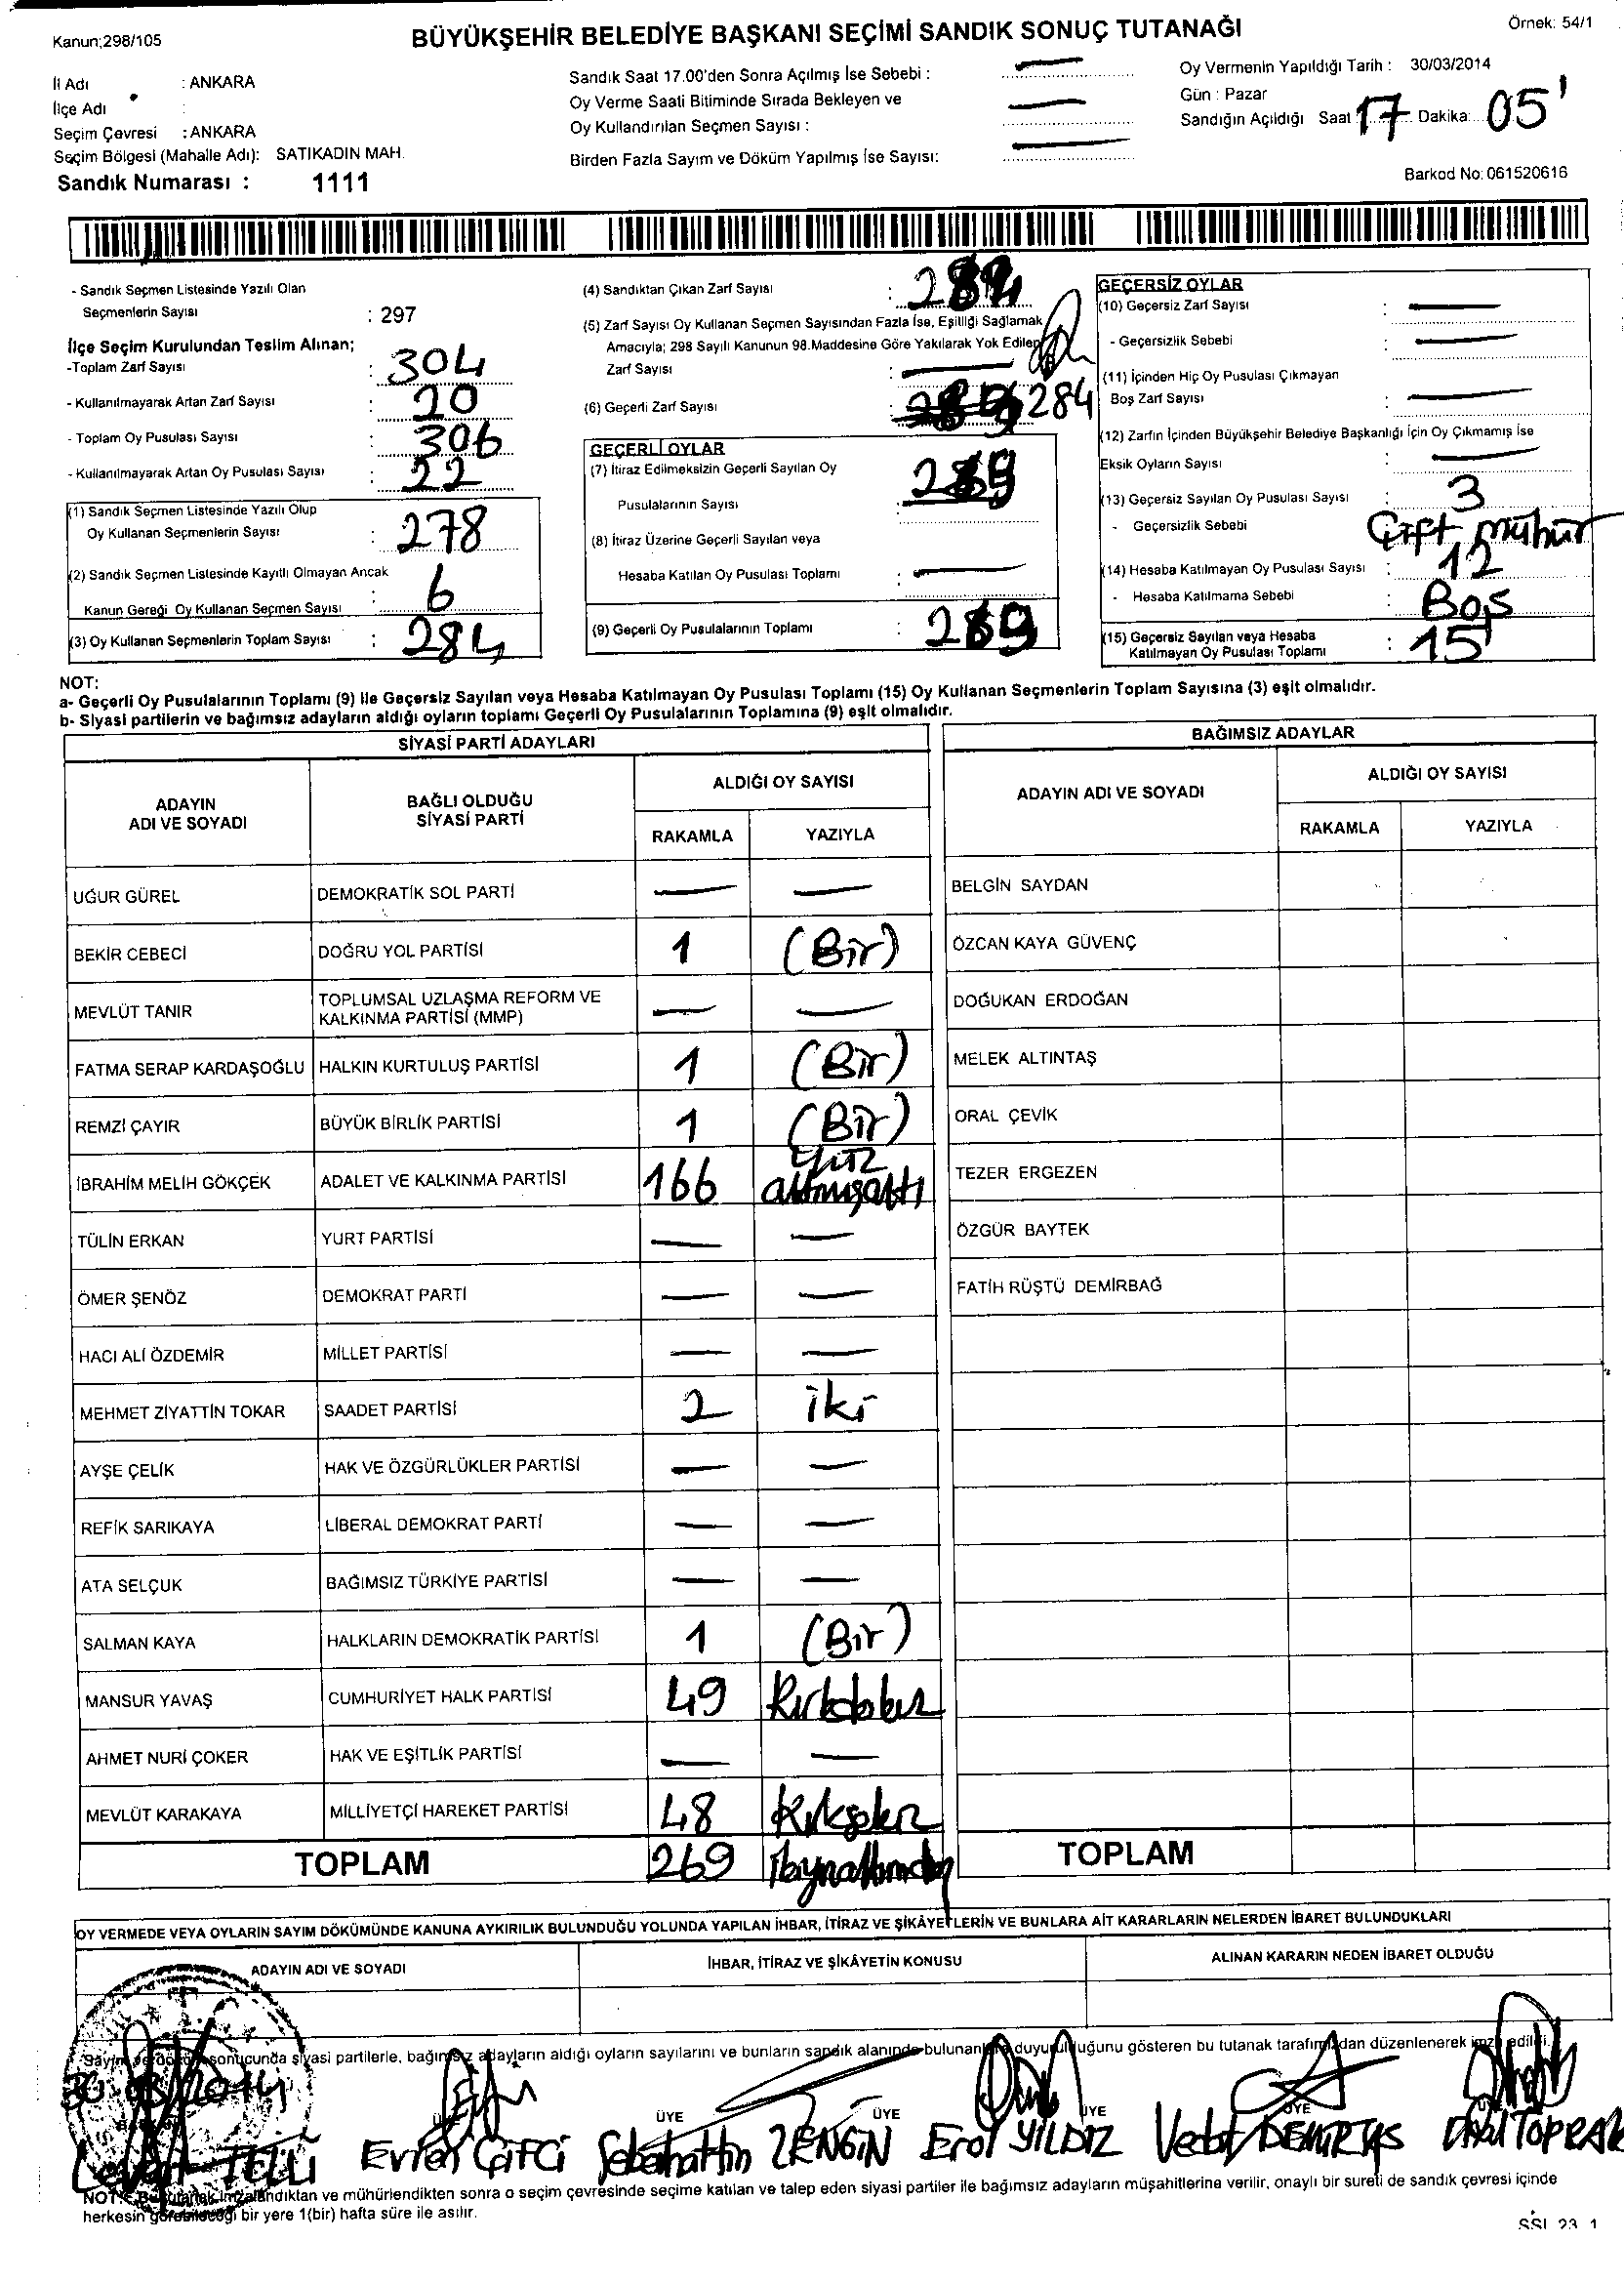 Kanun;298/105
BÜYÜKŞEHİR BELEDİYE BAŞKANI SEÇİMİ SANDIK SONUÇ TUTANAĞI
Örnek: 54/1
İl Adı : ANKARA
İlçe Adı :
Seçim Çevresi : ANKARA
Seçim Bölgesi (Mahalle Adı): SATIKADIN MAH.
Sandık Numarası : 1111
Sandık Saat 17.00'den Sonra Açılmış İse Sebebi :
Oy Verme Saati Bitiminde Sırada Bekleyen ve
Oy Kullandırılan Seçmen Sayısı :
Birden Fazla Sayım ve Döküm Yapılmış İse Sayısı:
Oy Vermenin Yapıldığı Tarih : 30/03/2014
Gün : Pazar
Sandığın Açıldığı Saat 17 Dakika: 05'
Barkod No: 061520616
- Sandık Seçmen Listesinde Yazılı Olan
Seçmenlerin Sayısı : 297
İlçe Seçim Kurulundan Teslim Alınan;
-Toplam Zarf Sayısı : 304
- Kullanılmayarak Artan Zarf Sayısı : 20
- Toplam Oy Pusulası Sayısı : 306
- Kullanılmayarak Artan Oy Pusulası Sayısı : 22
(1) Sandık Seçmen Listesinde Yazılı Olup
Oy Kullanan Seçmenlerin Sayısı : 278
(2) Sandık Seçmen Listesinde Kayıtlı Olmayan Ancak
Kanun Gereği Oy Kullanan Seçmen Sayısı : 6
(3) Oy Kullanan Seçmenlerin Toplam Sayısı : 284
(4) Sandıktan Çıkan Zarf Sayısı : 284
(5) Zarf Sayısı Oy Kullanan Seçmen Sayısından Fazla İse, Eşitliği Sağlamak
Amacıyla; 298 Sayılı Kanunun 98.Maddesine Göre Yakılarak Yok Edilen
Zarf Sayısı :
(6) Geçerli Zarf Sayısı : 284
GEÇERLİ OYLAR
(7) İtiraz Edilmeksizin Geçerli Sayılan Oy
Pusulalarının Sayısı : 269
(8) İtiraz Üzerine Geçerli Sayılan veya
Hesaba Katılan Oy Pusulası Toplamı :
(9) Geçerli Oy Pusulalarının Toplamı : 269
GEÇERSİZ OYLAR
(10) Geçersiz Zarf Sayısı :
- Geçersizlik Sebebi :
(11) İçinden Hiç Oy Pusulası Çıkmayan
Boş Zarf Sayısı :
(12) Zarfın İçinden Büyükşehir Belediye Başkanlığı İçin Oy Çıkmamış İse
Eksik Oyların Sayısı :
(13) Geçersiz Sayılan Oy Pusulası Sayısı : 3
- Geçersizlik Sebebi : Çift mühür
(14) Hesaba Katılmayan Oy Pusulası Sayısı : 12
- Hesaba Katılmama Sebebi : Boş
(15) Geçersiz Sayılan veya Hesaba
Katılmayan Oy Pusulası Toplamı : 15
NOT:
a- Geçerli Oy Pusulalarının Toplamı (9) ile Geçersiz Sayılan veya Hesaba Katılmayan Oy Pusulası Toplamı (15) Oy Kullanan Seçmenlerin Toplam Sayısına (3) eşit olmalıdır.
b- Siyasi partilerin ve bağımsız adayların aldığı oyların toplamı Geçerli Oy Pusulalarının Toplamına (9) eşit olmalıdır.
SİYASİ PARTİ ADAYLARI
ADAYIN ADI VE SOYADI
BAĞLI OLDUĞU SİYASİ PARTİ
ALDIĞI OY SAYISI
RAKAMLA YAZIYLA
UĞUR GÜREL DEMOKRATİK SOL PARTİ
BEKİR CEBECİ DOĞRU YOL PARTİSİ 1 (Bir)
MEVLÜT TANIR TOPLUMSAL UZLAŞMA REFORM VE
KALKINMA PARTİSİ (MMP)
FATMA SERAP KARDAŞOĞLU HALKIN KURTULUŞ PARTİSİ 1 (Bir)
REMZİ ÇAYIR BÜYÜK BİRLİK PARTİSİ 1 (Bir)
İBRAHİM MELİH GÖKÇEK ADALET VE KALKINMA PARTİSİ 166 yüz altmışaltı
TÜLİN ERKAN YURT PARTİSİ
ÖMER ŞENÖZ DEMOKRAT PARTİ
HACI ALİ ÖZDEMİR MİLLET PARTİSİ
MEHMET ZİYATTİN TOKAR SAADET PARTİSİ 2 iki
AYŞE ÇELİK HAK VE ÖZGÜRLÜKLER PARTİSİ
REFİK SARIKAYA LİBERAL DEMOKRAT PARTİ
ATA SELÇUK BAĞIMSIZ TÜRKİYE PARTİSİ
SALMAN KAYA HALKLARIN DEMOKRATİK PARTİSİ 1 (Bir)
MANSUR YAVAŞ CUMHURİYET HALK PARTİSİ 49 Kırkdokuz
AHMET NURİ ÇOKER HAK VE EŞİTLİK PARTİSİ
MEVLÜT KARAKAYA MİLLİYETÇİ HAREKET PARTİSİ 48 Kırksekiz
TOPLAM 269
BAĞIMSIZ ADAYLAR
ADAYIN ADI VE SOYADI
ALDIĞI OY SAYISI
RAKAMLA YAZIYLA
BELGİN SAYDAN
ÖZCAN KAYA GÜVENÇ
DOĞUKAN ERDOĞAN
MELEK ALTINTAŞ
ORAL ÇEVİK
TEZER ERGEZEN
ÖZGÜR BAYTEK
FATİH RÜŞTÜ DEMİRBAĞ
TOPLAM
OY VERMEDE VEYA OYLARIN SAYIM DÖKÜMÜNDE KANUNA AYKIRILIK BULUNDUĞU YOLUNDA YAPILAN İHBAR, İTİRAZ VE ŞİKÂYETLERİN VE BUNLARA AİT KARARLARIN NELERDEN İBARET BULUNDUKLARI
ADAYIN ADI VE SOYADI
İHBAR, İTİRAZ VE ŞİKÂYETİN KONUSU
ALINAN KARARIN NEDEN İBARET OLDUĞU
Sayım ve döküm sonucunda siyasi partilerle, bağımsız adayların aldığı oyların sayılarını ve bunların sandık alanında bulunanlara duyurulduğunu gösteren bu tutanak tarafımızdan düzenlenerek imza edildi.
30/03/2014
ÜYE ÜYE ÜYE ÜYE
Levent TELLİ Evren ÇİFCİ Sebahattin ZENGİN Erol YILDIZ Vedat DEMİRTAŞ TOPRAK
NOT: Bu tutanak imzalandıktan ve mühürlendikten sonra o seçim çevresinde seçime katılan ve talep eden siyasi partiler ile bağımsız adayların müşahitlerine verilir, onaylı bir sureti de sandık çevresi içinde
herkesin görebileceği bir yere 1(bir) hafta süre ile asılır.